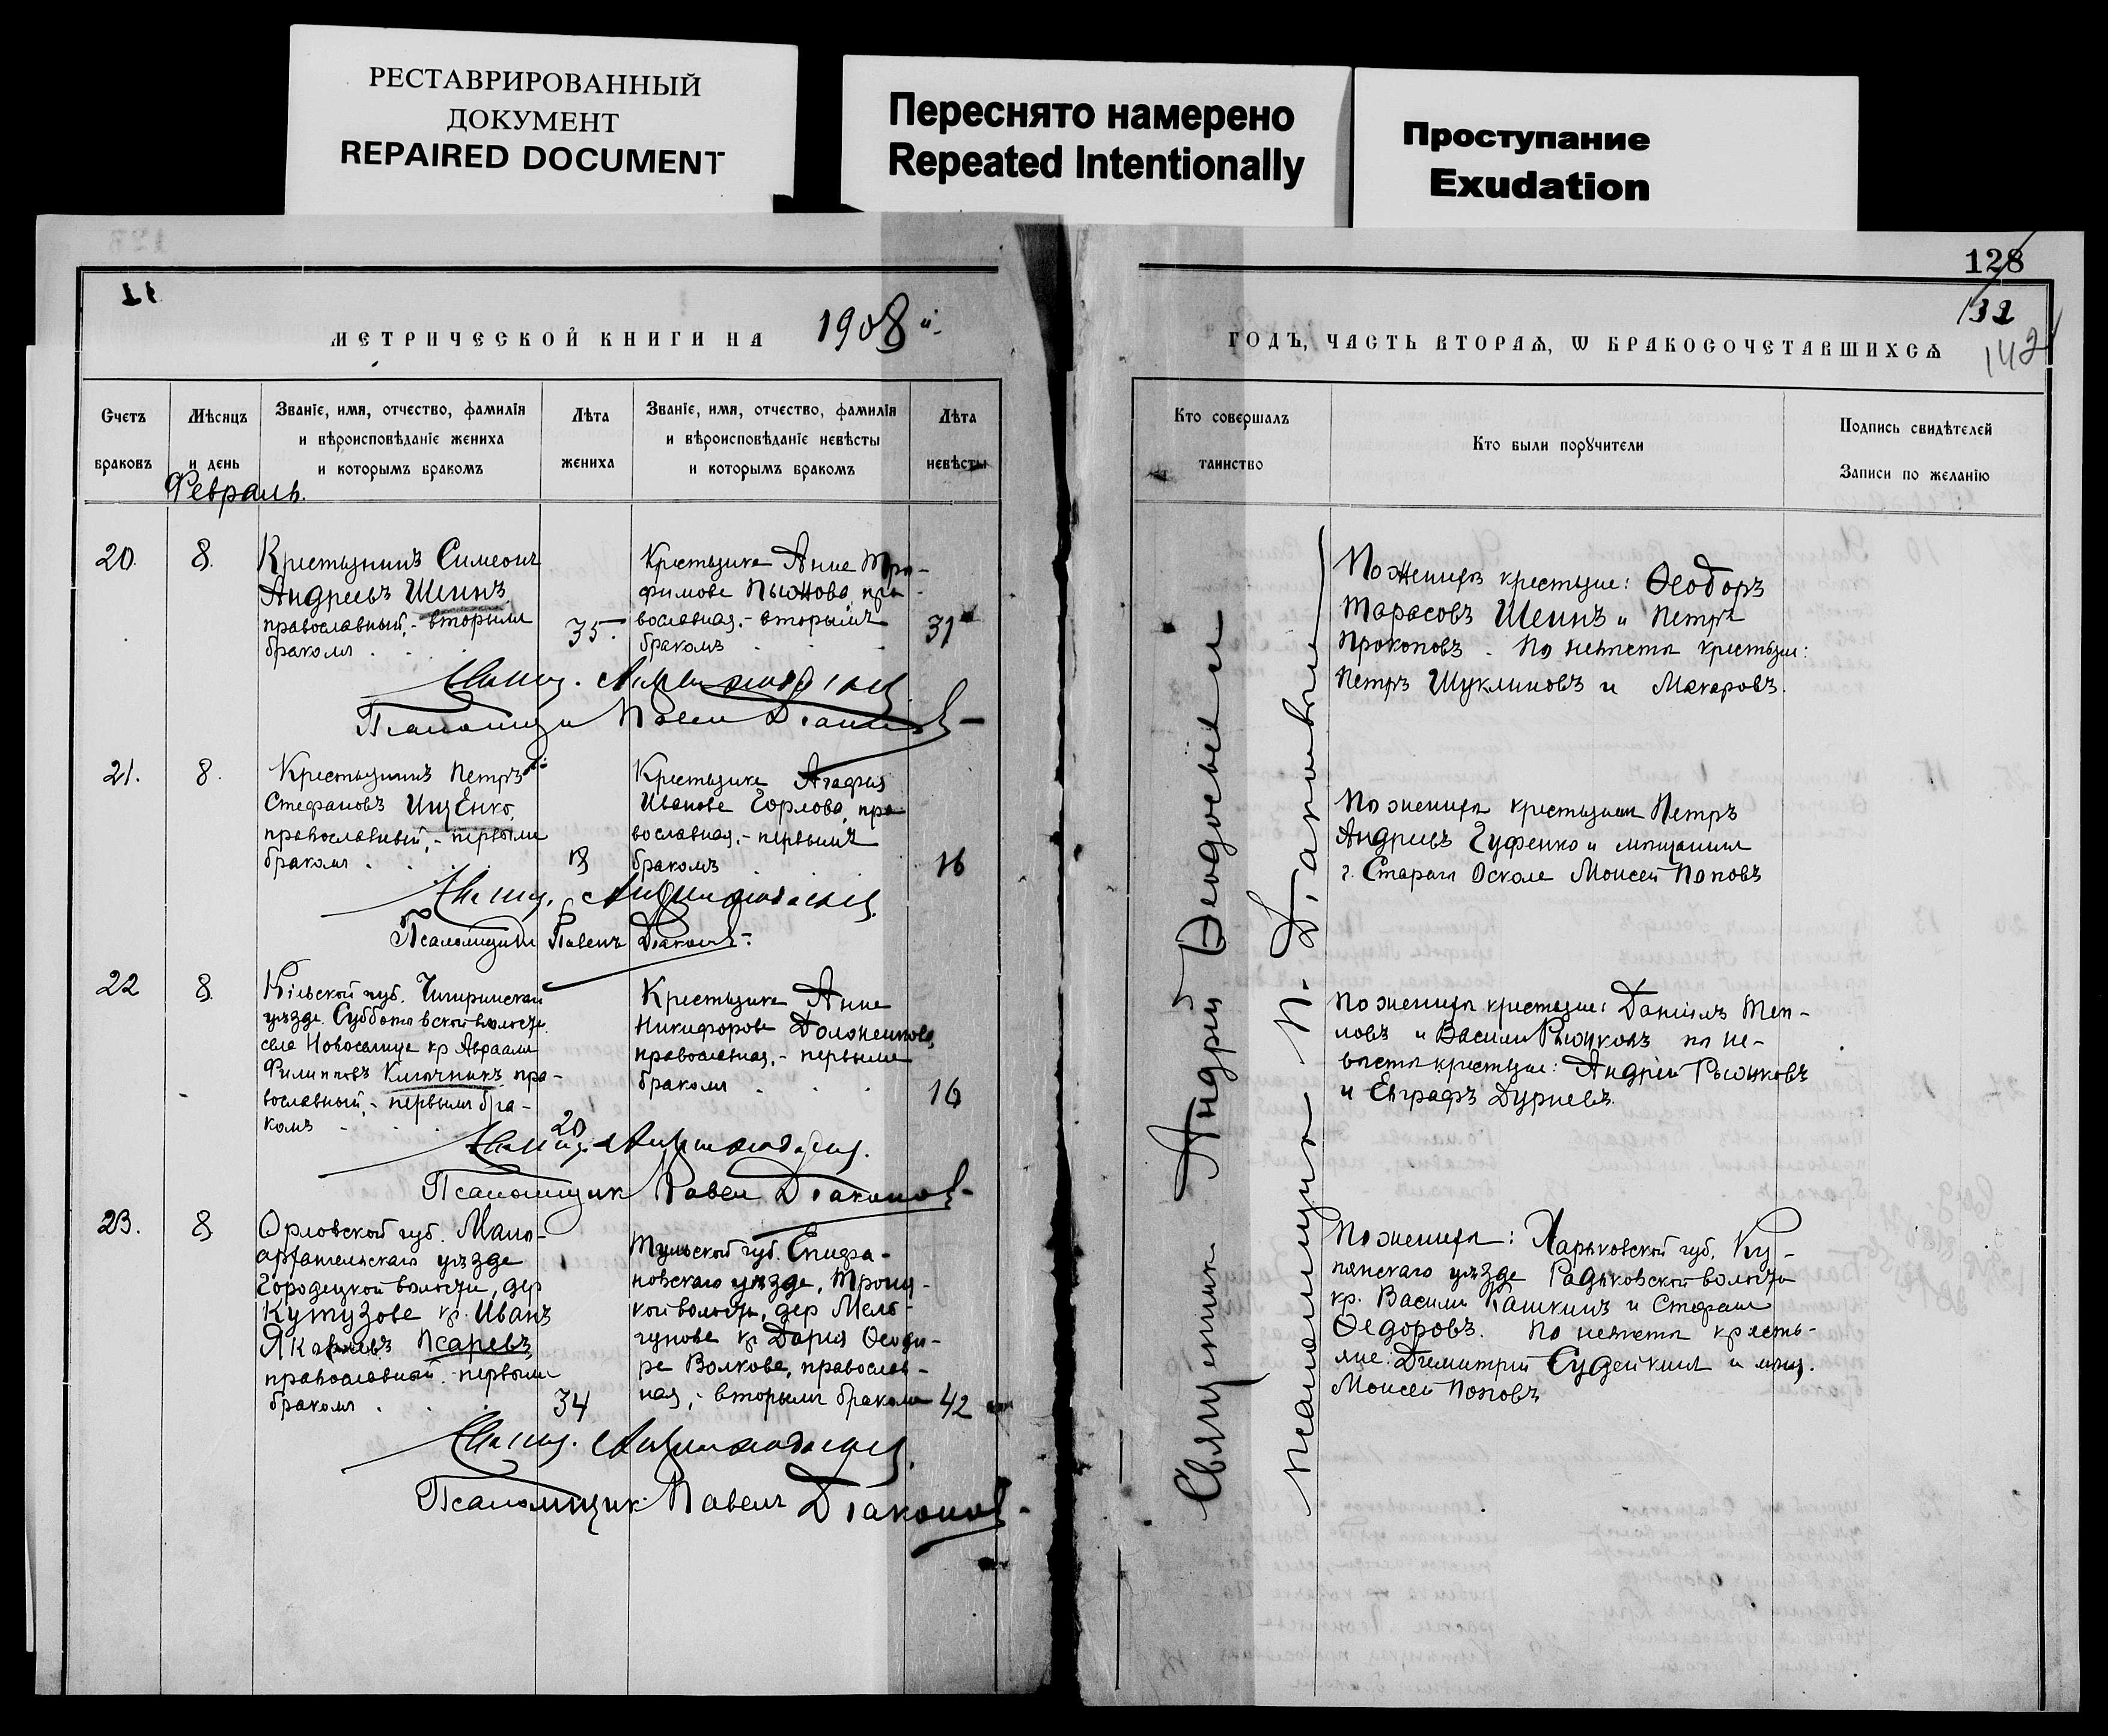 РЕСТАВРИРОВАННЫЙ
ДОКУМЕНТ
REPAIRED DOCUMENT
Переснято намерено
Repeated Intentionally
Проступание
Exudation
11
МЕТРИЧЕСКОЙ КНИГИ НА 1908й
Счетъ
браковъ
Мѣсяцъ
и день
Званіе, имя, отчество, фамилія
и вѣроисповѣданіе жениха
и которымъ бракомъ
Лѣта
жениха
Званіе, имя, отчество, фамилія
и вѣроисповѣданіе невѣсты
и которымъ бракомъ
Лѣта
невѣсты
Февраль.
20.
8.
Крестьянинъ Симеонъ
Андреевъ Шеинъ
православный, - вторымъ
бракомъ
35.
Крестьянка Анна Тро-
фимова Пыжова, пра-
вославная. - вторымъ
бракомъ
31
Псаломщикъ Павелъ Діаконовъ
21.
8.
Крестьянинъ Петръ
Стефановъ Ищенко,
православный, - первымъ
бракомъ
18
Крестьянка Агафия
Иванова Горлова, пра-
вославная. - первымъ
бракомъ
16
Псаломщикъ Павелъ Діаконовъ
22
8.
Кіевской губ. Чигиринскаго
уѣзда. Субботовской волости.
села Новоселица кр Авраамъ
Филипповъ Ключникъ, пра-
вославный, - первымъ бра-
комъ
20
Крестьянка Анна
Никифорова Долженкова,
православная, - первымъ
бракомъ
16
Псаломщикъ Павелъ Діаконовъ
23.
8.
Орловской губ. Мало-
архангельскаго уѣзда
Городецкой волости, дер
Кутузова кр. Иванъ
Яковлевъ Псаревъ,
православный. первымъ
бракомъ
34
Тульской губ. Епифа-
новскаго уѣзда, Троиц-
кой волости, дер Мель-
гунова кр Дарія Ѳеодо-
ра Волкова, православ-
ная, - вторымъ бракомъ
42
Псаломщикъ Павелъ Діаконовъ
128
132
142
ГОДЪ, ЧАСТЬ ВТОРАѦ, Ѡ БРАКОСОЧЕТАВШИХСѦ
Кто совершалъ
таинство
Кто были порꙋчители
Подпись свидѣтелей
Записи по желанію
Священникъ Андрей Ѳеодосьевъ
псаломщикъ П. Діаконовъ
По женихѣ крестьяне: Ѳеодоръ
Тарасовъ Шеинъ и Петръ
Прокоповъ. По невѣстѣ крестьяне:
Петръ Шуклиновъ и Макаровъ.
По женихѣ крестьянинъ Петръ
Андреевъ Гуфенко и мѣщанинъ
г. Стараго Оскола Моисей Поповъ
По женихѣ крестьяне: Даніилъ Теп-
ловъ и Василій Рыжковъ по не-
вѣстѣ крестьяне: Андрей Рыжковъ
и Евграфъ Дурневъ.
По женихѣ: Харьковской губ. Ку-
пянскаго уѣзда Радьковской волости
кр. Василій Кашкинъ и Стефанъ
Ѳедоровъ. По невѣстѣ кресть-
яне: Димитрій Судейкинъ и мѣщ.
Моисей Поповъ